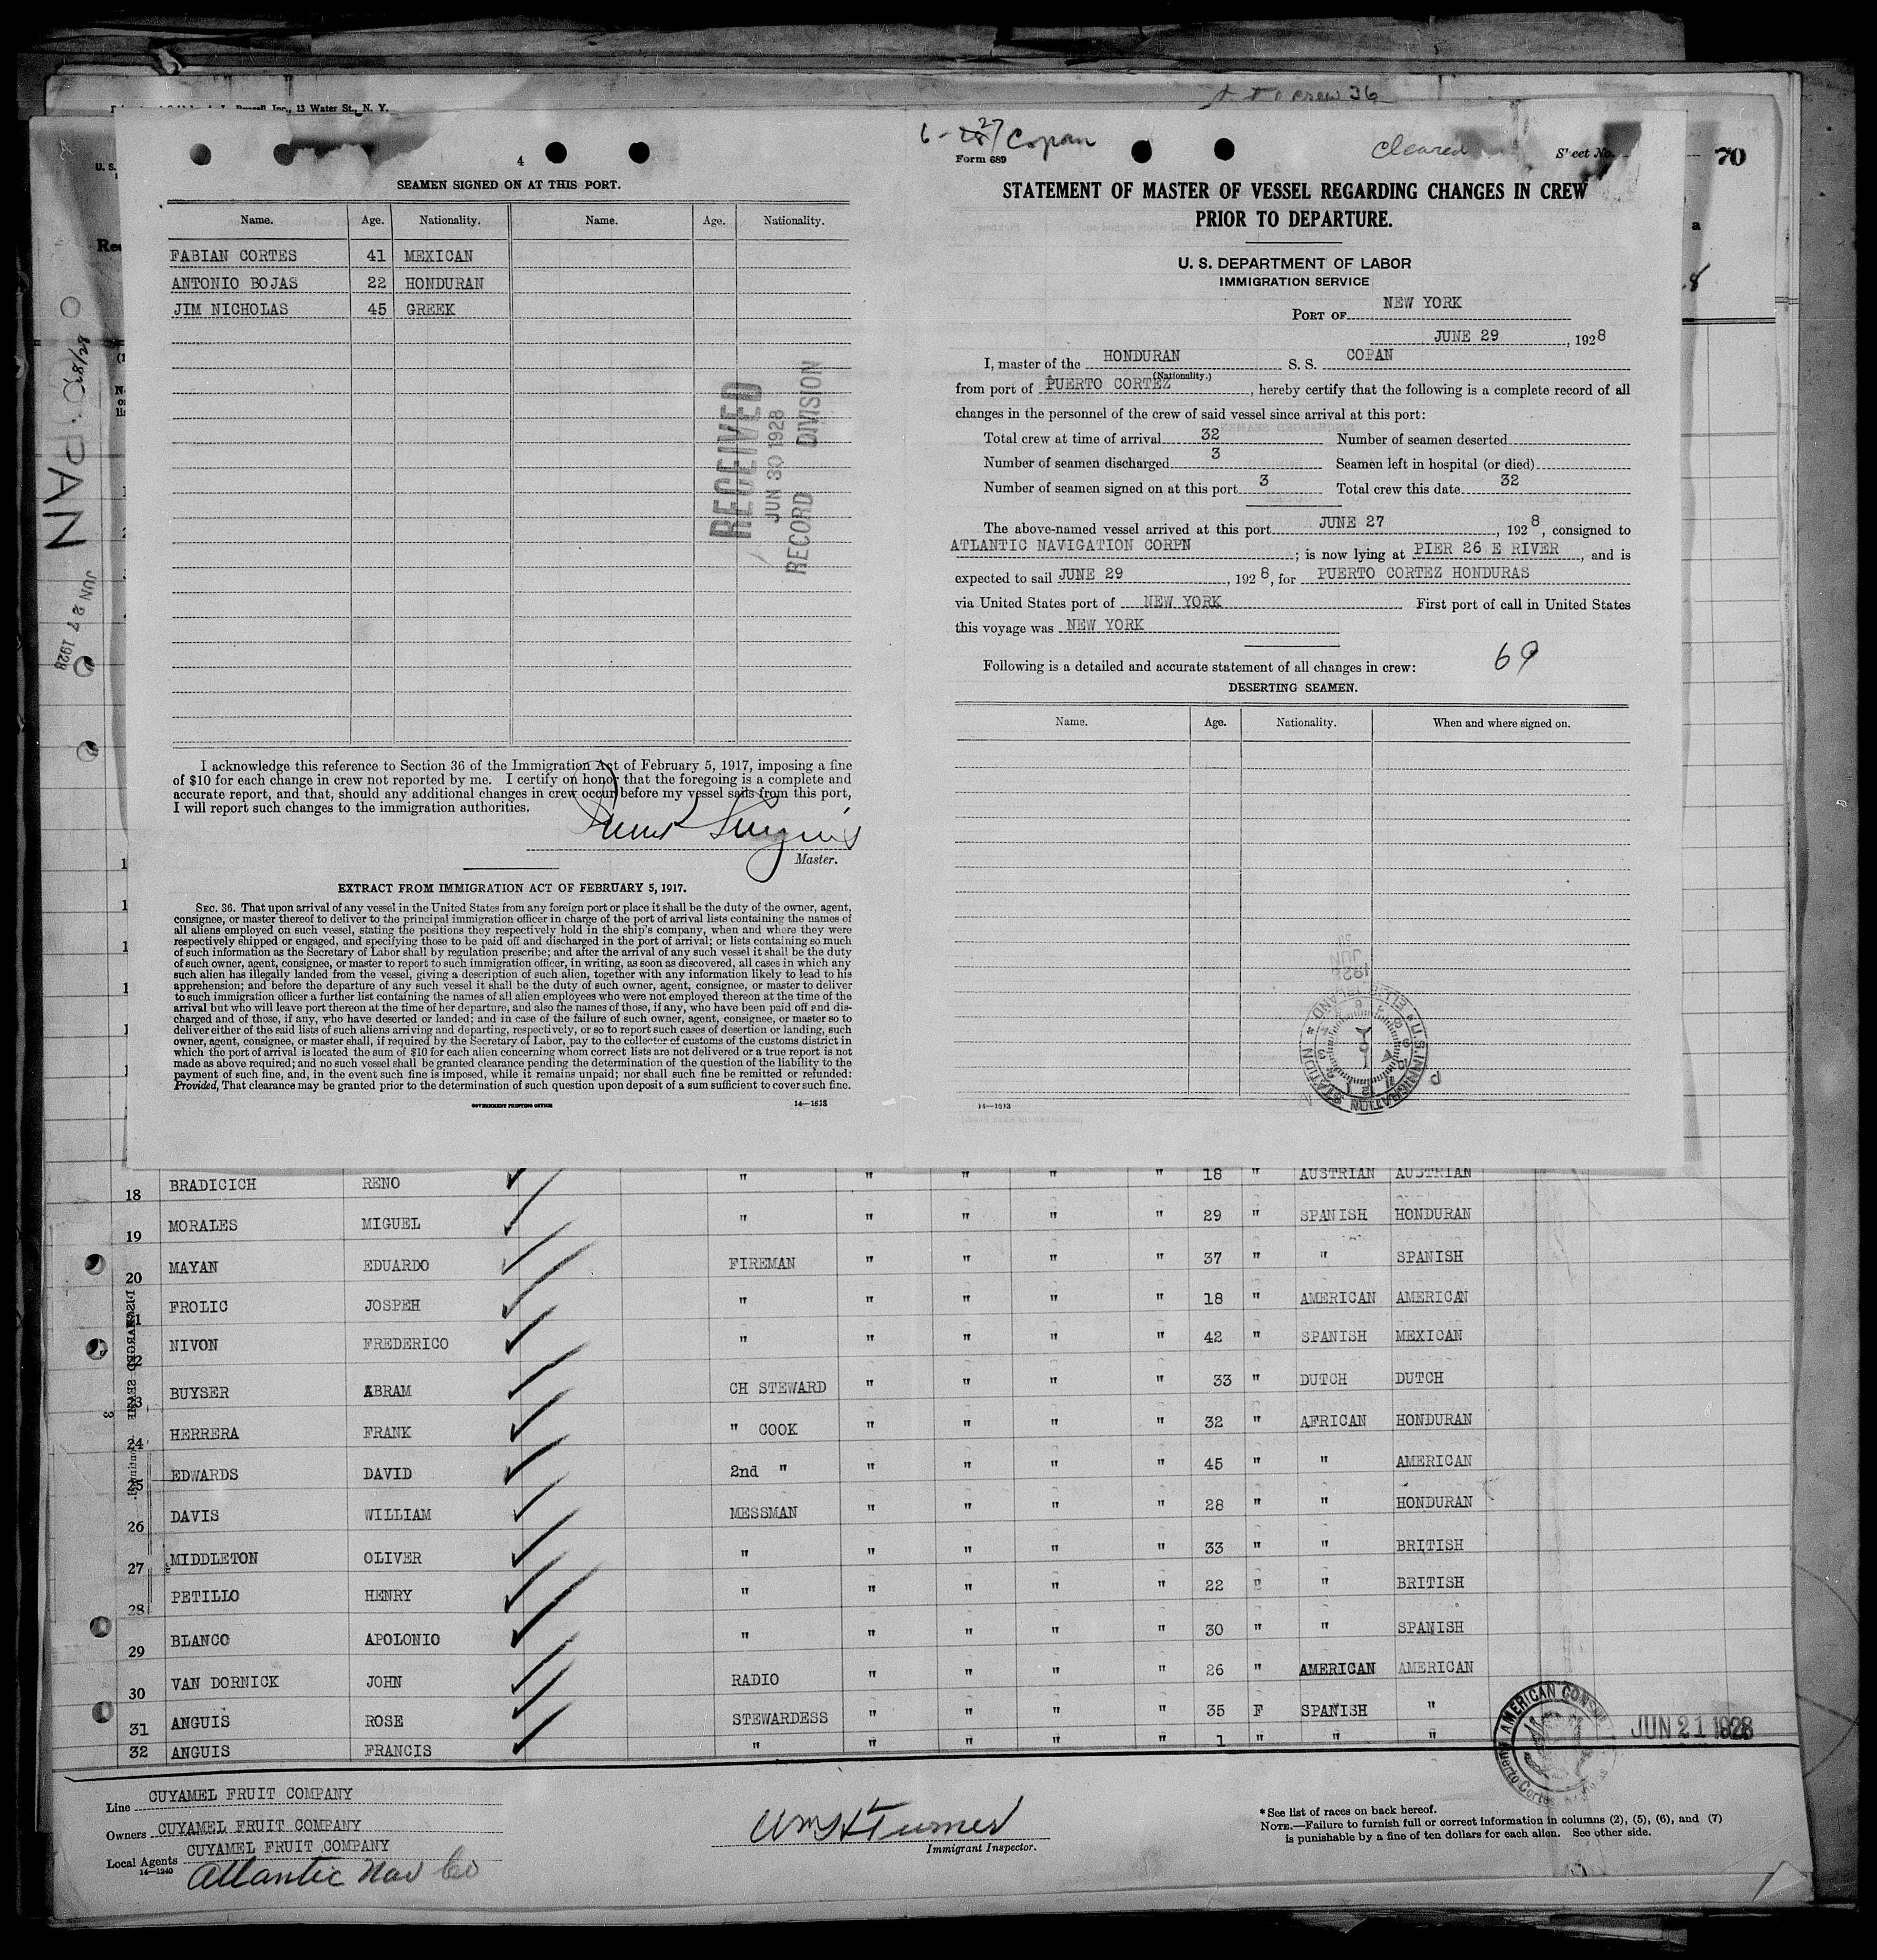 13 Water St., N. Y.
crew 36
4
SEAMEN SIGNED ON AT THIS PORT.
Name. Age. Nationality. Name. Age. Nationality.
FABIAN CORTES 41 MEXICAN
ANTONIO BOJAS 22 HONDURAN
JIM NICHOLAS 45 GREEK
RECEIVED
JUN 30 1928
RECORD DIVISION
I acknowledge this reference to Section 36 of the Immigration Act of February 5, 1917, imposing a fine
of $10 for each change in crew not reported by me. I certify on honor that the foregoing is a complete and
accurate report, and that, should any additional changes in crew occur before my vessel sails from this port,
I will report such changes to the immigration authorities.
Master.
EXTRACT FROM IMMIGRATION ACT OF FEBRUARY 5, 1917.
SEC. 36. That upon arrival of any vessel in the United States from any foreign port or place it shall be the duty of the owner, agent,
consignee, or master thereof to deliver to the principal immigration officer in charge of the port of arrival lists containing the names of
all aliens employed on such vessel, stating the positions they respectively hold in the ship's company, when and where they were
respectively shipped or engaged, and specifying those to be paid off and discharged in the port of arrival; or lists containing so much
of such information as the Secretary of Labor shall by regulation prescribe; and after the arrival of any such vessel it shall be the duty
of such owner, agent, consignee, or master to report to such immigration officer, in writing, as soon as discovered, all cases in which any
such alien has illegally landed from the vessel, giving a description of such alien, together with any information likely to lead to his
apprehension; and before the departure of any such vessel it shall be the duty of such owner, agent, consignee, or master to deliver
to such immigration officer a further list containing the names of all alien employees who were not employed thereon at the time of the
arrival but who will leave port thereon at the time of her departure, and also the names of those, if any, who have been paid off and dis-
charged and of those, if any, who have deserted or landed; and in case of the failure of such owner, agent, consignee, or master so to
deliver either of the said lists of such aliens arriving and departing, respectively, or so to report such cases of desertion or landing, such
owner, agent, consignee, or master shall, if required by the Secretary of Labor, pay to the collector of customs of the customs district in
which the port of arrival is located the sum of $10 for each alien concerning whom correct lists are not delivered or a true report is not
made as above required; and no such vessel shall be granted clearance pending the determination of the question of the liability to the
payment of such fine, and, in the event such fine is imposed, while it remains unpaid; nor shall such fine be remitted or refunded:
Provided, That clearance may be granted prior to the determination of such question upon deposit of a sum sufficient to cover such fine.
GOVERNMENT PRINTING OFFICE 14—1613
6-27 Copan
Form 689
cleared
Sheet No. 70
STATEMENT OF MASTER OF VESSEL REGARDING CHANGES IN CREW
PRIOR TO DEPARTURE.
U. S. DEPARTMENT OF LABOR
IMMIGRATION SERVICE
PORT OF NEW YORK
JUNE 29, 1928
I, master of the HONDURAN S. S. COPAN
(Nationality.)
from port of PUERTO CORTEZ, hereby certify that the following is a complete record of all
changes in the personnel of the crew of said vessel since arrival at this port:
Total crew at time of arrival 32 Number of seamen deserted
Number of seamen discharged 3 Seamen left in hospital (or died)
Number of seamen signed on at this port 3 Total crew this date 32
The above-named vessel arrived at this port JUNE 27, 1928, consigned to
ATLANTIC NAVIGATION CORPN; is now lying at PIER 26 E RIVER, and is
expected to sail JUNE 29, 1928, for PUERTO CORTEZ HONDURAS
via United States port of NEW YORK First port of call in United States
this voyage was NEW YORK
69
Following is a detailed and accurate statement of all changes in crew:
DESERTING SEAMEN.
Name. Age. Nationality. When and where signed on.
U.S. IMMIGRATION STATION ELLIS ISLAND
14—1613
COPAN
JUN 27 1928
18 BRADICICH RENO " " " " " 18 " AUSTRIAN AUSTRIAN
19 MORALES MIGUEL " " " " " 29 " SPANISH HONDURAN
20 MAYAN EDUARDO FIREMAN " " " " 37 " " SPANISH
21 FROLIC JOSPEH " " " " " 18 " AMERICAN AMERICAN
22 NIVON FREDERICO " " " " " 42 " SPANISH MEXICAN
23 BUYSER ABRAM CH STEWARD " " " " 33 " DUTCH DUTCH
24 HERRERA FRANK " COOK " " " " 32 " AFRICAN HONDURAN
25 EDWARDS DAVID 2nd " " " " " 45 " " AMERICAN
26 DAVIS WILLIAM MESSMAN " " " " 28 " " HONDURAN
27 MIDDLETON OLIVER " " " " " 33 " " BRITISH
28 PETILLO HENRY " " " " " 22 " " BRITISH
29 BLANCO APOLONIO " " " " " 30 " " SPANISH
30 VAN DORNICK JOHN RADIO " " " " 26 " AMERICAN AMERICAN
31 ANGUIS ROSE STEWARDESS " " " " 35 F SPANISH "
32 ANGUIS FRANCIS " " " " " 1 " " "
AMERICAN CONSUL
Puerto Cortes
JUN 21 1928
Line CUYAMEL FRUIT COMPANY
Owners CUYAMEL FRUIT COMPANY
Local Agents CUYAMEL FRUIT COMPANY
14—1240
Atlantic Nav Co
Wm H Turner
Immigrant Inspector.
* See list of races on back hereof.
NOTE.—Failure to furnish full or correct information in columns (2), (5), (6), and (7)
is punishable by a fine of ten dollars for each alien. See other side.